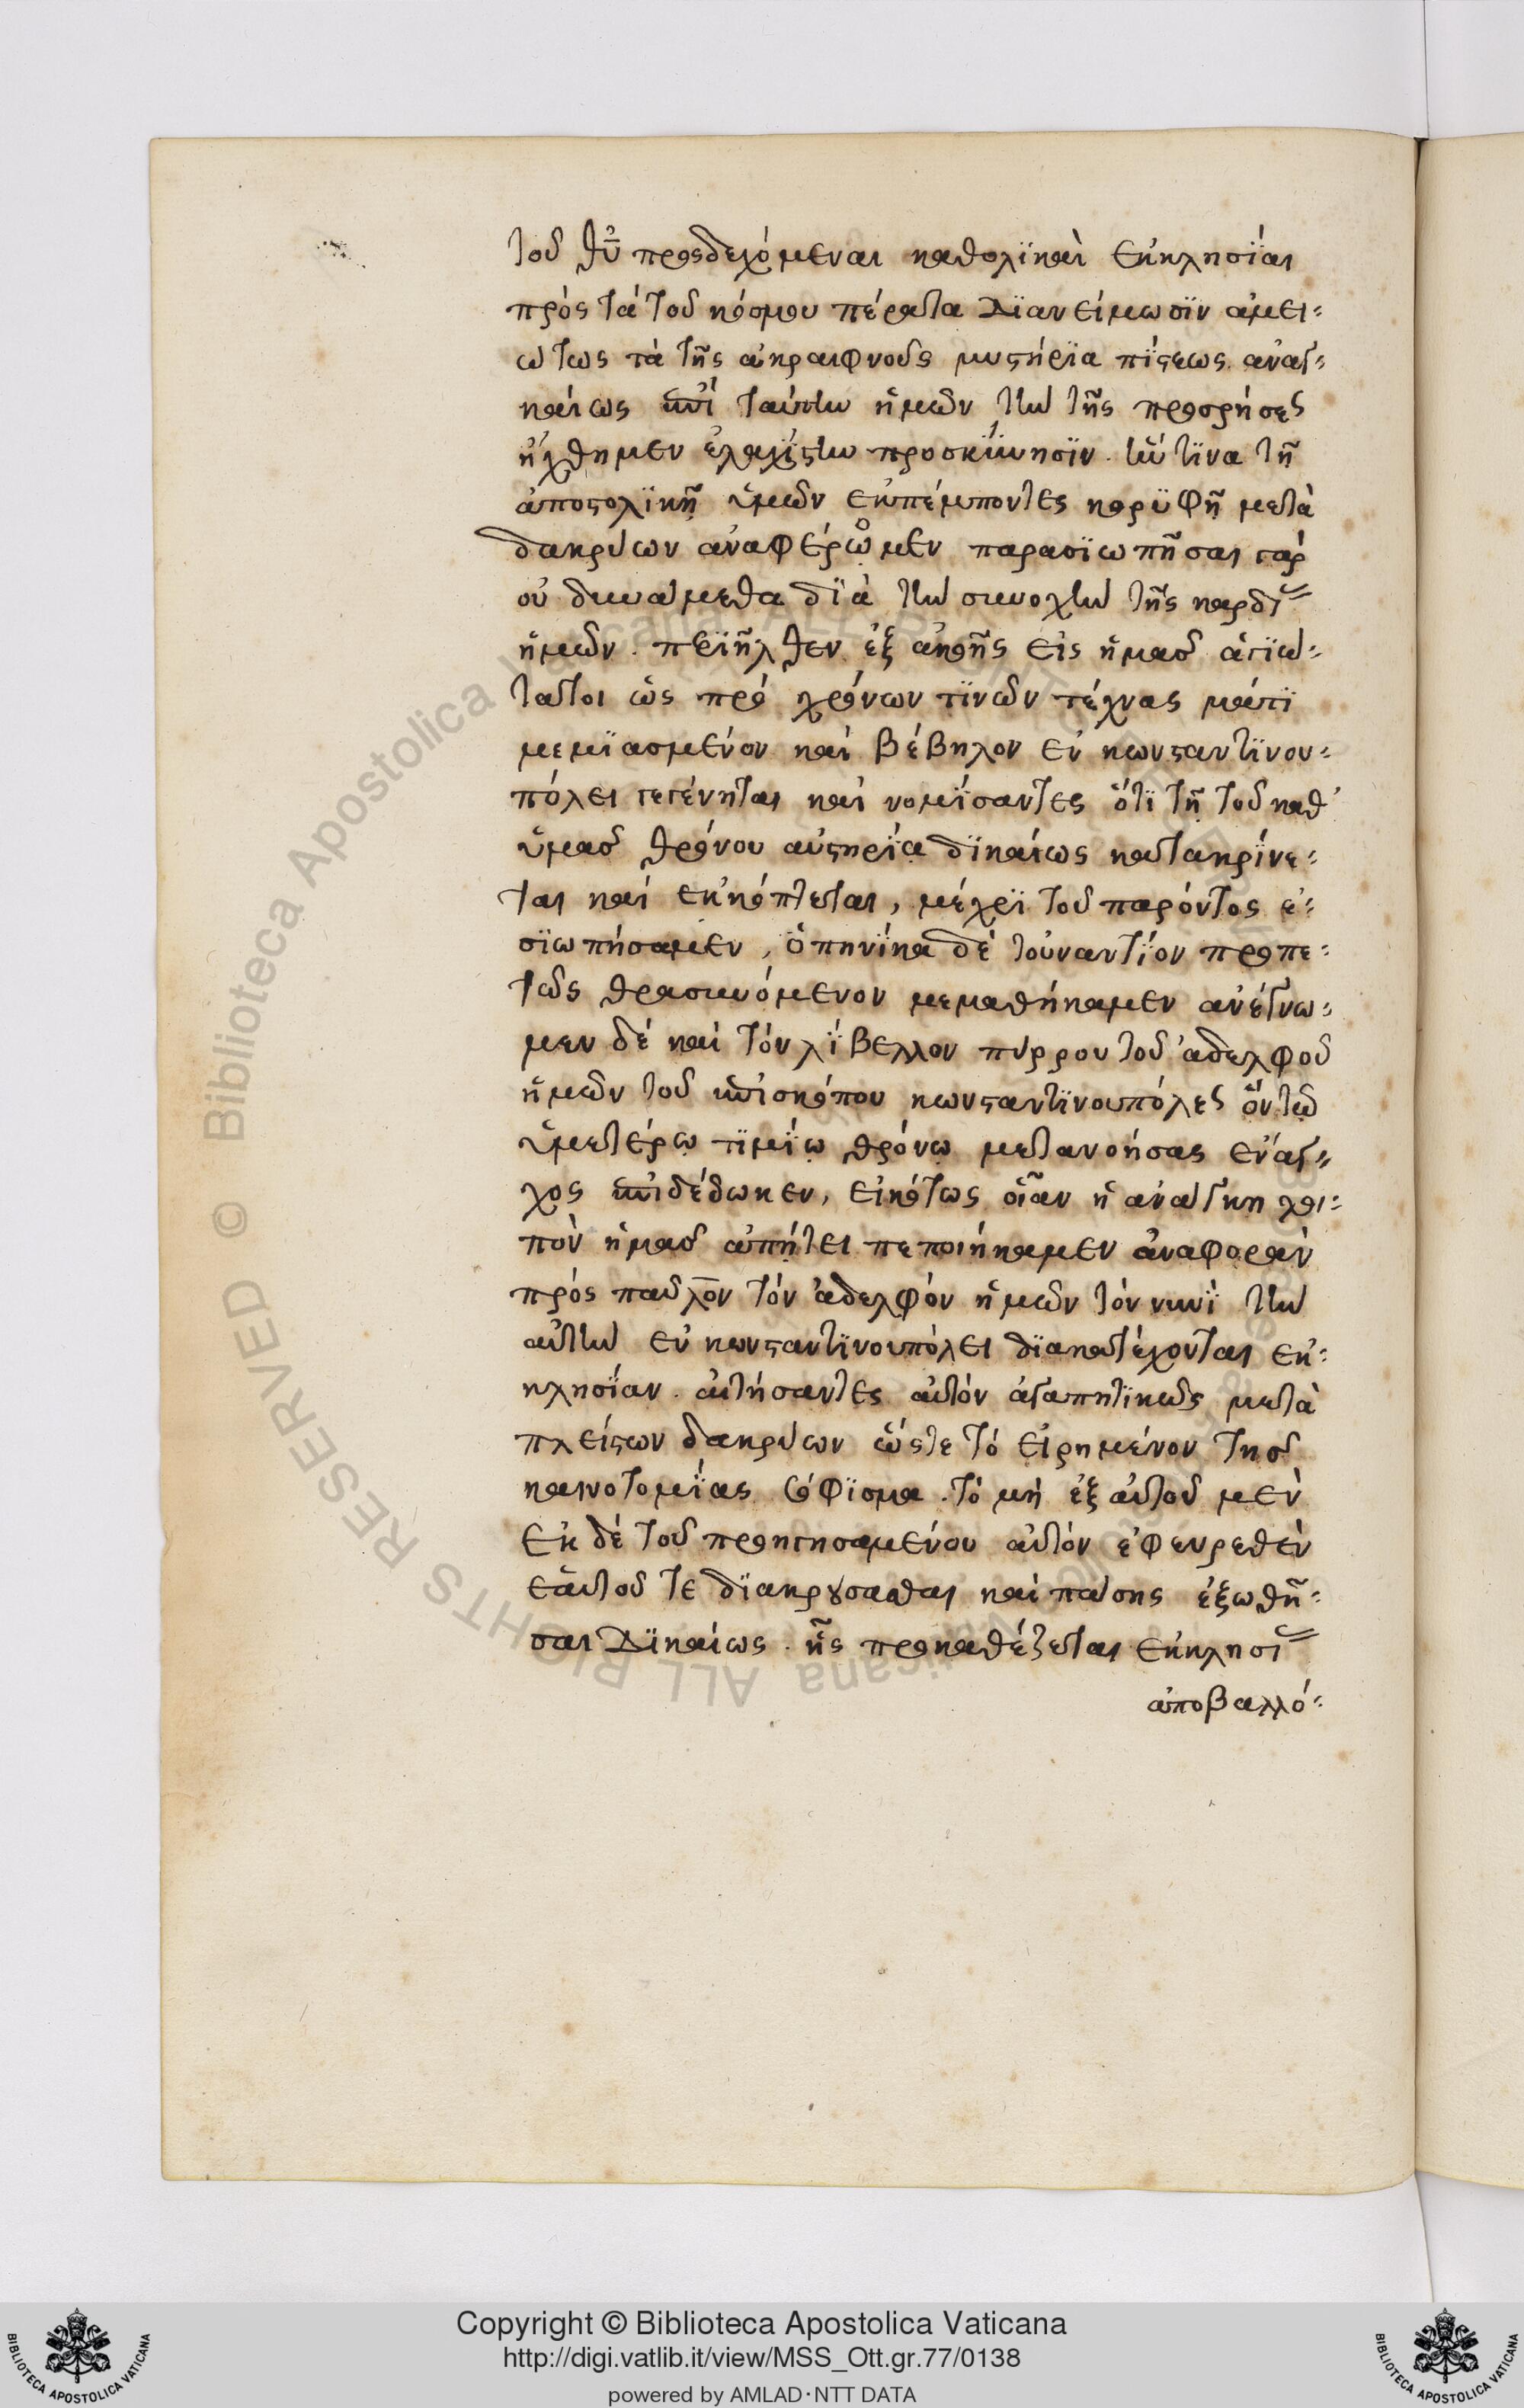 τοῦ θῡ προςδεχόμεναι καθολϊκαὶ ἐκκλησΐαι
πρός τά τοῦ κόσμου πέρατα Δϊανείμωσϊν ἀμει=
ώτως τὰ τῆς ἀκραιφνοῦς μυςήρϊα πΐςεως. ἀναγ=
καίως ἐπὶ ταύτην ἡμῶν τὴν τῆς προσρήσεως
ἤχθημεν ἐλαχΐςην προσκΰνησϊν. ἥντϊνα τῇ
ἀποςολϊκῇ ὑμῶν ἐκπέμποντες κορϋφῇ μετὰ
δακρύων ἀναφέρωμεν παρασϊωπῆσαι γάρ
οὐ δυνάμεθα δϊὰ τὴν συνοχὴν τῆς καρδΐας
ἡμῶν. περϊῆλθεν ἐξ ἀκοῆς εἰς ἡμᾶς ἁγϊώ=
τατοι ὡς πρό χρόνων τϊνῶν τέχνας κάτϊ
μεμϊασμένον καί βέβηλον ἐν κωνςαντϊνου=
πόλει γεγένηται καί νομΐσαντες ὅτϊ τῇ τοῦ καθ᾽
ὑμᾶς θρόνου αὐςηρΐα δϊκαίως κατακρΐνε=
ται καί ἐκκόπτεται, μέχρϊ τοῦ παρόντος ἐ=
σϊωπήσαμεν, ὁπηνΐκα δέ τοὐναντΐον προπε=
τῶς θρασυνόμενον μεμαθήκαμεν ἀνέγνω=
μεν δέ καί τόν λΐβελλον πύρρου τοῦ ἀδελφοῦ
ἡμῶν τοῦ ἐπισκόπου κωνςαντϊνουπόλεως ὅν τῷ
ὑμετέρῳ τϊμΐῳ θρόνῳ μετανοήσας ἔναγ=
χος ἐπιδέδωκεν, εἰκότως οἵαν ἡ ἀνάγκη λοι=
πὸν ἡμᾶς ἀπῄτει πεποιήκαμεν ἀναφορὰν
πρός παῦλον τόν ἀδελφόν ἡμῶν τόν νυνΐ τὴν
αὐτὴν ἐν κωνςαντϊνουπόλει δϊακατέχονται ἐκ=
κλησΐαν. αἰτήσαντες αὐτόν ἀγαπητϊκῶς μετὰ
πλείςων δακρύων ὥςτε τό εἰρημένον τῆς
καινοτομΐας σόφϊσμα. τό μή ἐξ αὐτοῦ μέν
ἐκ δέ τοῦ προηγησαμένου αὐτόν ἐφευρεθὲν
ἑαυτοῦ τε δϊακρούσασθαι καί πάσης ἐξωθῆ=
σαι Δϊκαίως. ἧς προκαθέζεται ἐκκλησΐας
ἀποβαλλό=
Copyright © Biblioteca Apostolica Vaticana
http://digi.vatlib.it/view/MSS_Ott.gr.77/0138
powered by AMLAD·NTT DATA
BIBLIOTECA APOSTOLICA VATICANA
BIBLIOTECA APOSTOLICA VATICANA